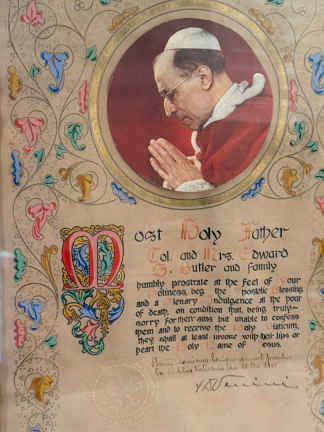 Most Holy Father
Col. and Mrs. Edward
S. Butler and family
humbly prostrate at the feet of Your
Holiness, beg the Apostolic Blessing
and a Plenary Indulgence at the hour
of death, on condition that, being truly
sorry for their sins but unable to confess
them and to receive the Holy Viaticum,
they shall at least invoke with their lips or
heart the Holy Name of Jesus.